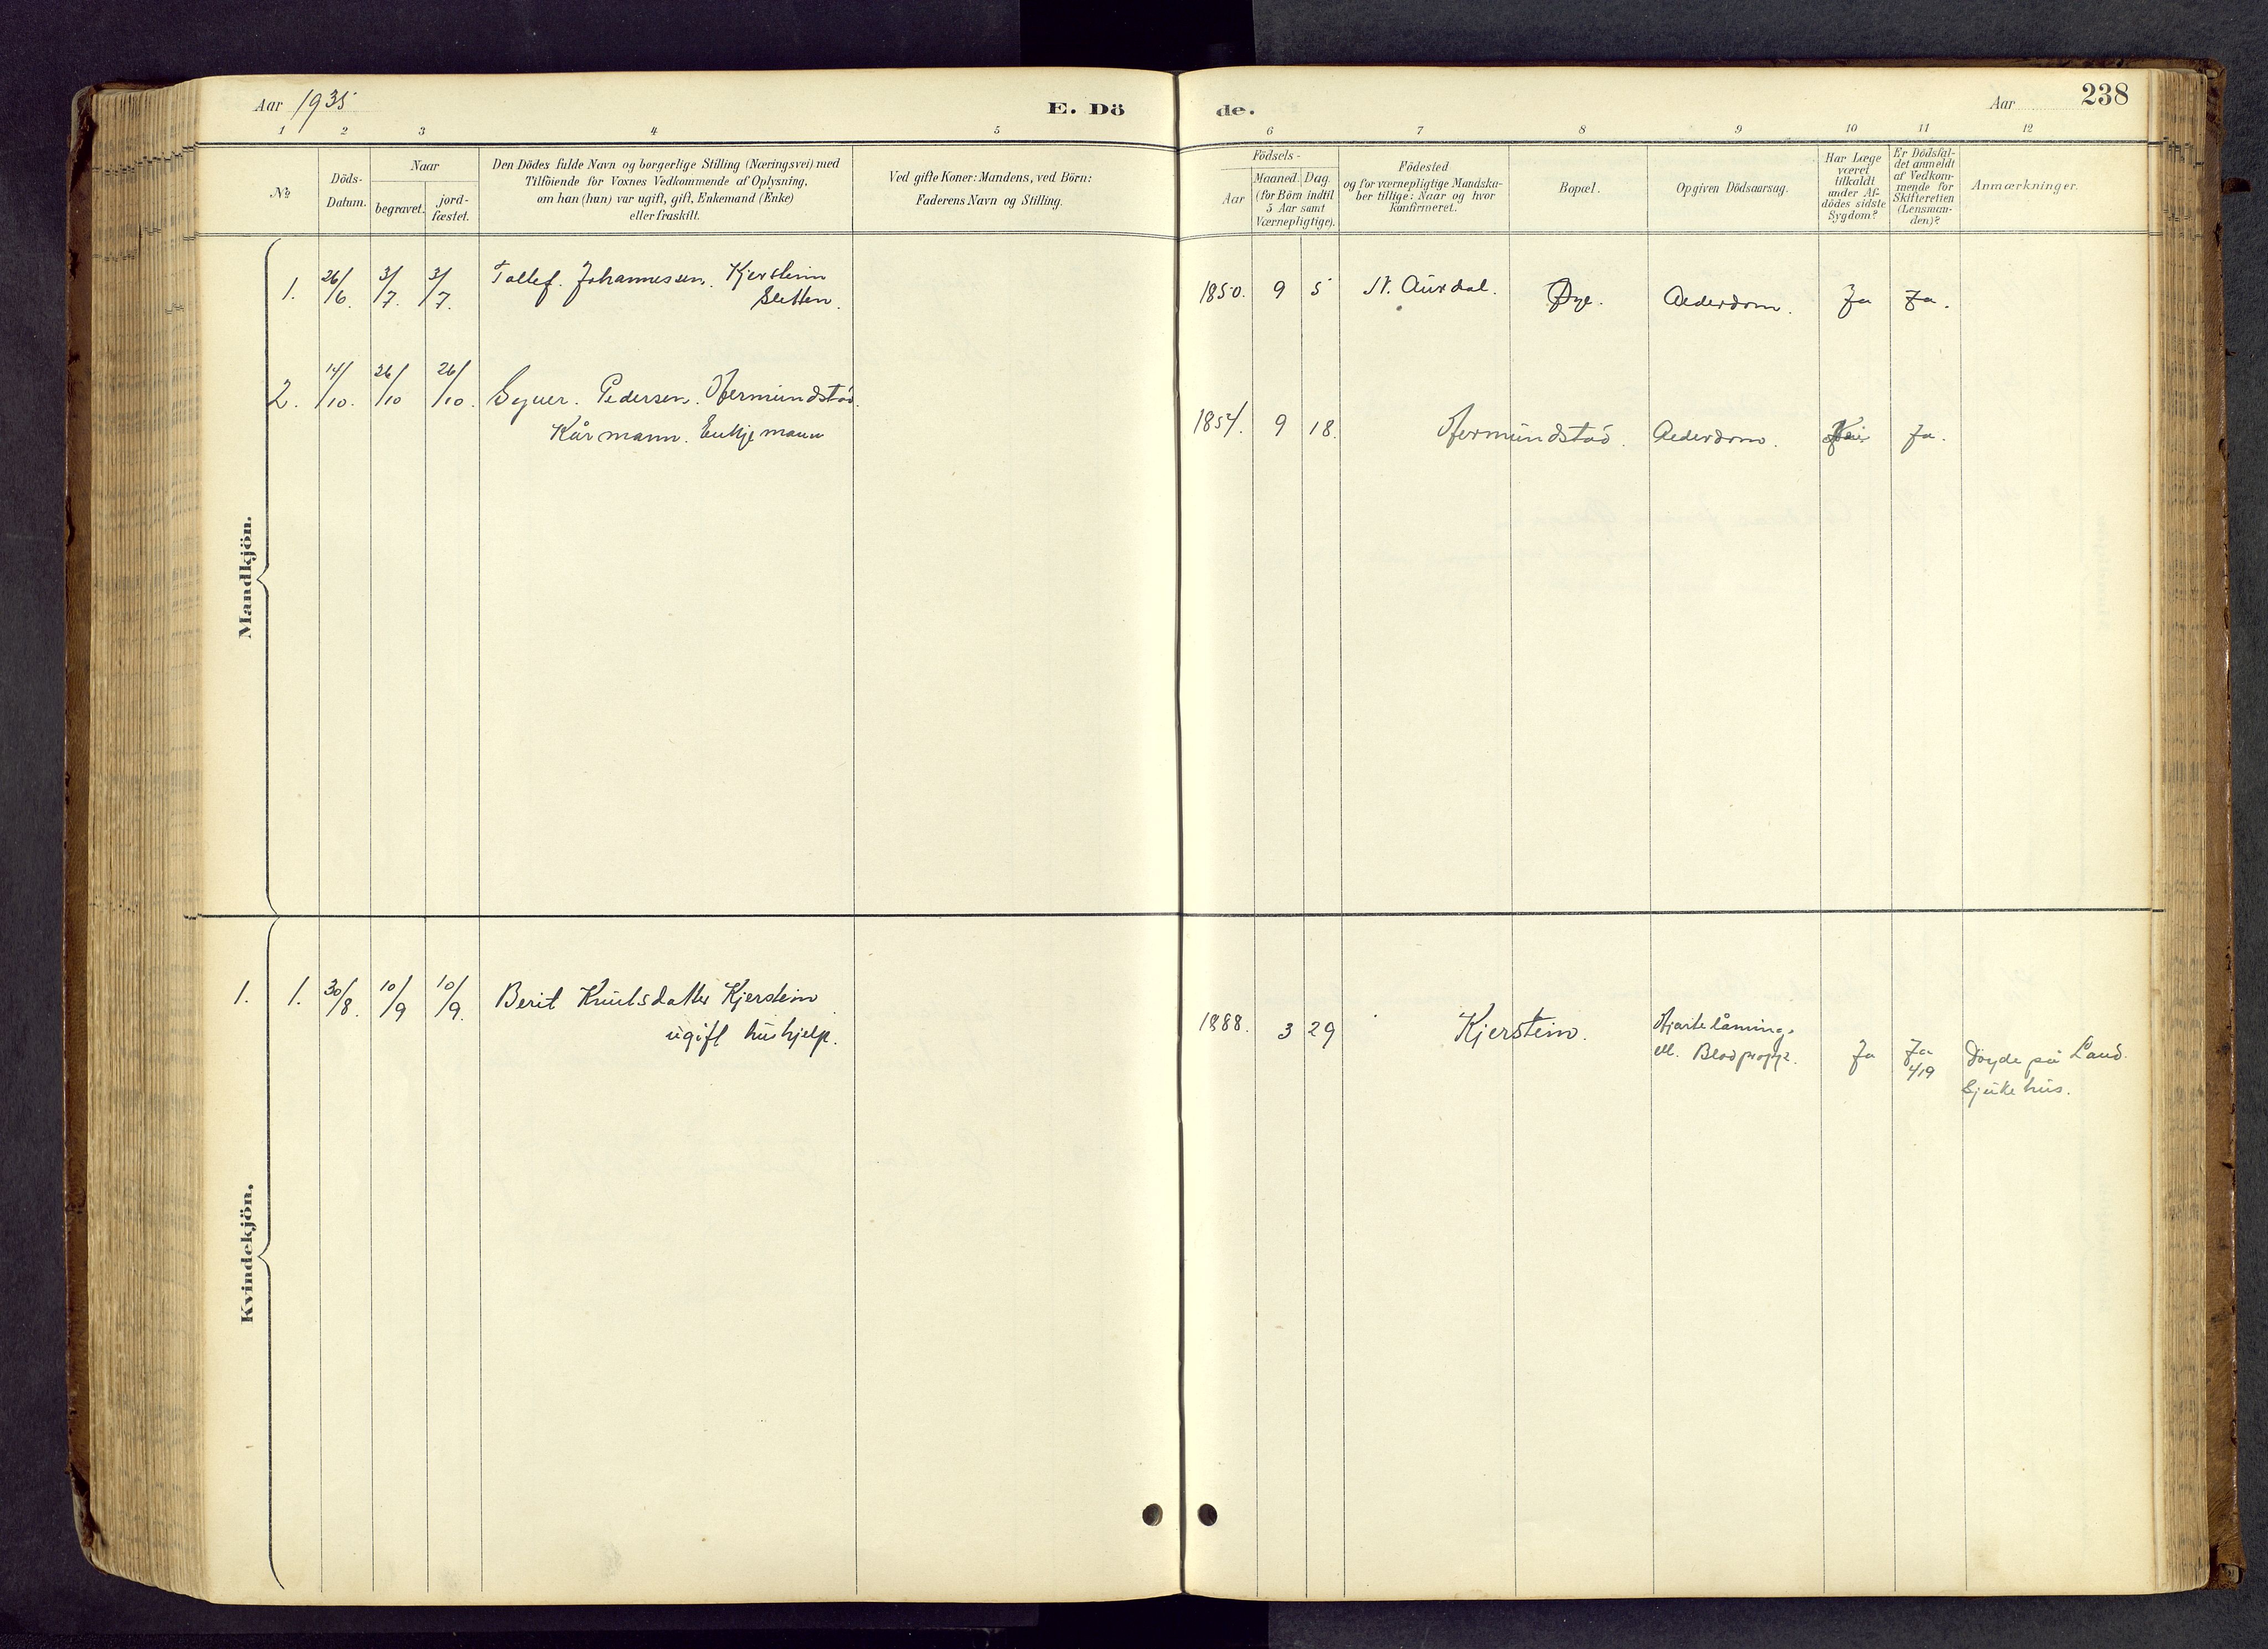 Aar 1935
E. Dö
1 2 3 4 5
№
Döds-
Datum.
Naar
begravet.
jord-
fæstet.
Den Dödes fulde Navn og borgerlige Stilling (Næringsvei) med
Tilföiende for Voxnes Vedkommende af Oplysning,
om han (hun) var ugift, gift, Enkemand (Enke)
eller fraskilt.
Ved gifte Koner: Mandens, ved Börn:
Faderens Navn og Stilling.
Mandkjön.
1. 26/6. 3/7. 3/7. Tollef. Johannessen. Kjerstein
Sletten.
2. 14/10. 26/10 26/10. Pedersen. Hermundstad.
Kårmann. Enkjemann
Kvindekjön.
1. 1. 30/8. 10/9 10/9. Berit Knutsdatter Kjerstein
ugift hushjelp.
de.
Aar
238
6 7 8 9 10 11 12
Födsels-
Aar
Maaned. Dag.
(for Börn indtil
5 Aar samt
Værnepligtige).
Födested
og for værnepligtige Mandska-
ber tillige: Naar og hvor
konfirmeret.
Bopæl.
Opgiven Dödsaarsag.
Har Læge
været
tilkaldt
under Af-
dödes sidste
Sygdom?
Er Dödsfal-
det anmeldt
af Vedkom-
mende for
Skifteretten
(Lensman-
den)?
Anmærkninger.
1850. 9 5 N. Aurdal. Øye. Alderdom. Ja Ja.
1854. 9 18. Hermundstad. Alderdom. Nei Ja.
1888. 3 29 Kjerstein. Hjartelåming.
ell. Blodpropp. Ja Ja
4/9
Døyde på Land.
Sjukehus.